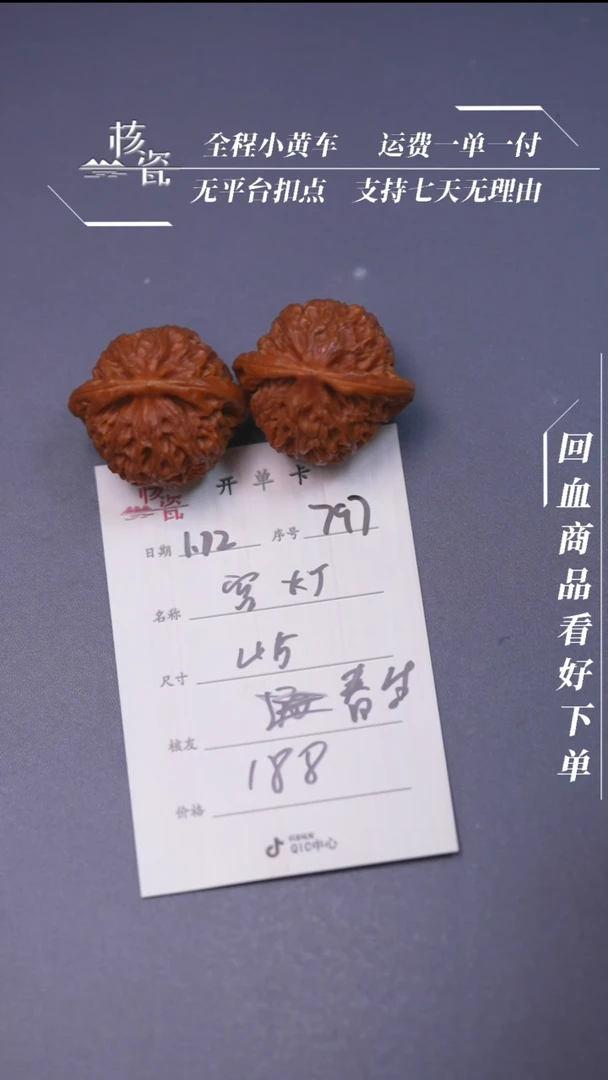 核瓷
全程小黄车 运费一单一付
无平台扣点 支持七天无理由
回血商品看好下单
核瓷 开单卡
日期 1.12 序号 797
名称 宫灯
尺寸 45
核友 春生
价格 188
QIC中心